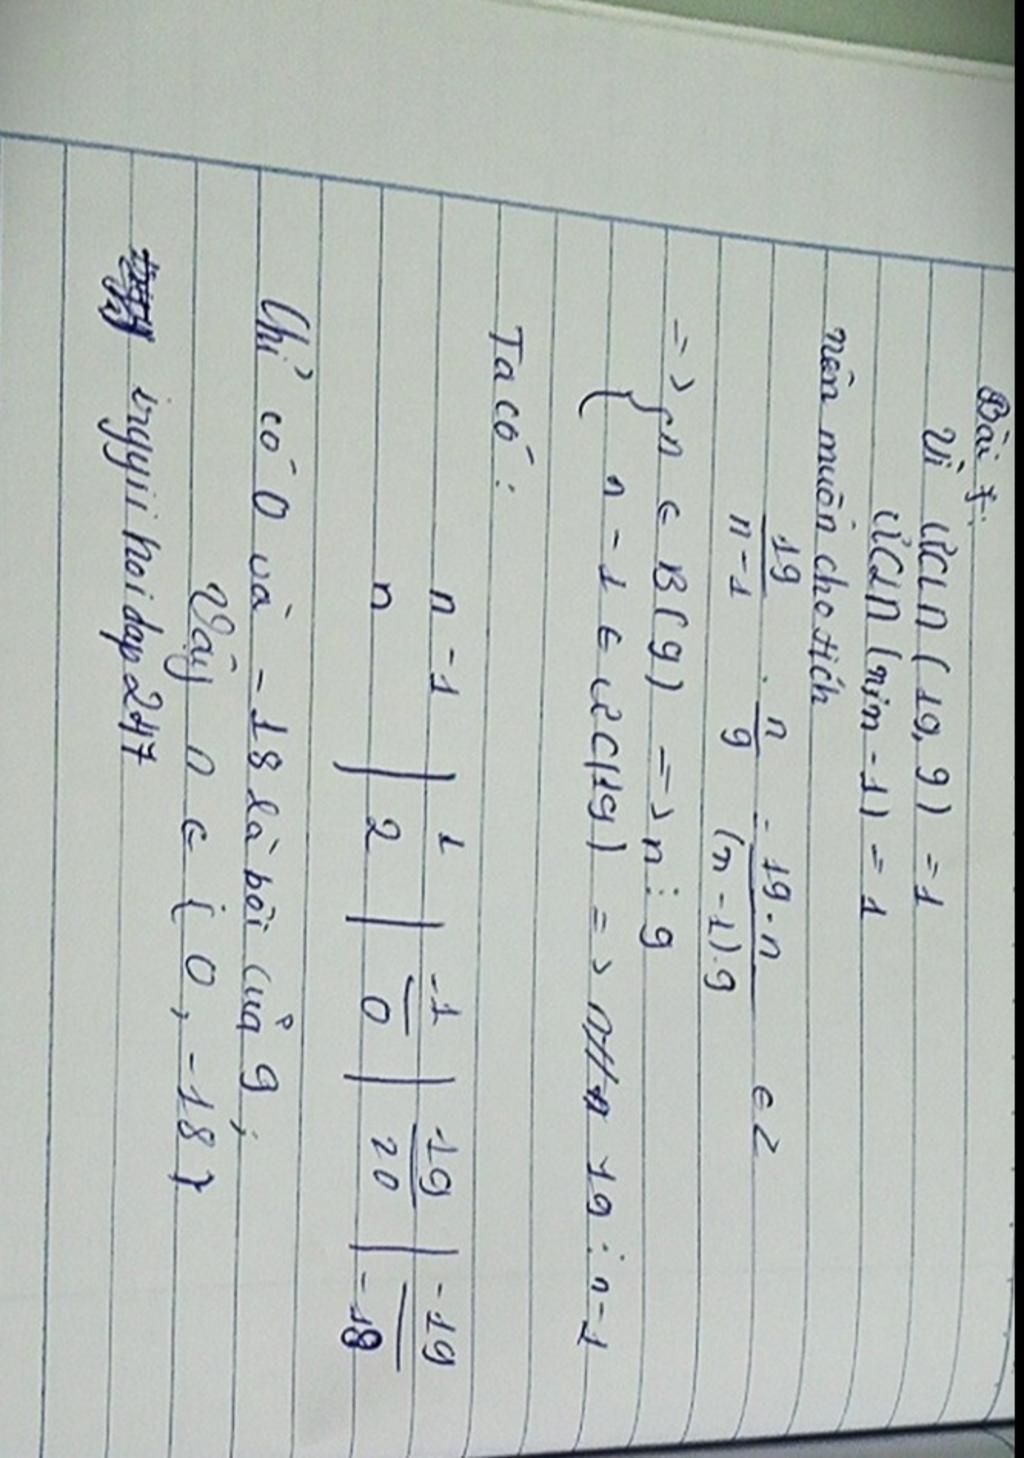 Bài 7:
Vì ƯCLN (19, 9) = 1
ƯCLN (n; n - 1) = 1
nên muốn cho tích
19/n-1 . n/9 = 19.n/(n-1).9 ∈ Z
=> { n ∈ B(9) => n ⋮ 9
n - 1 ∈ ƯC(19) => 19 ⋮ n-1
Ta có:
n - 1 | 1 | -1 | 19 | -19
n | 2 | 0 | 20 | -18
Chỉ có 0 và -18 là bội của 9;
Vậy n ∈ { 0, -18 }
inyyii hoidap247